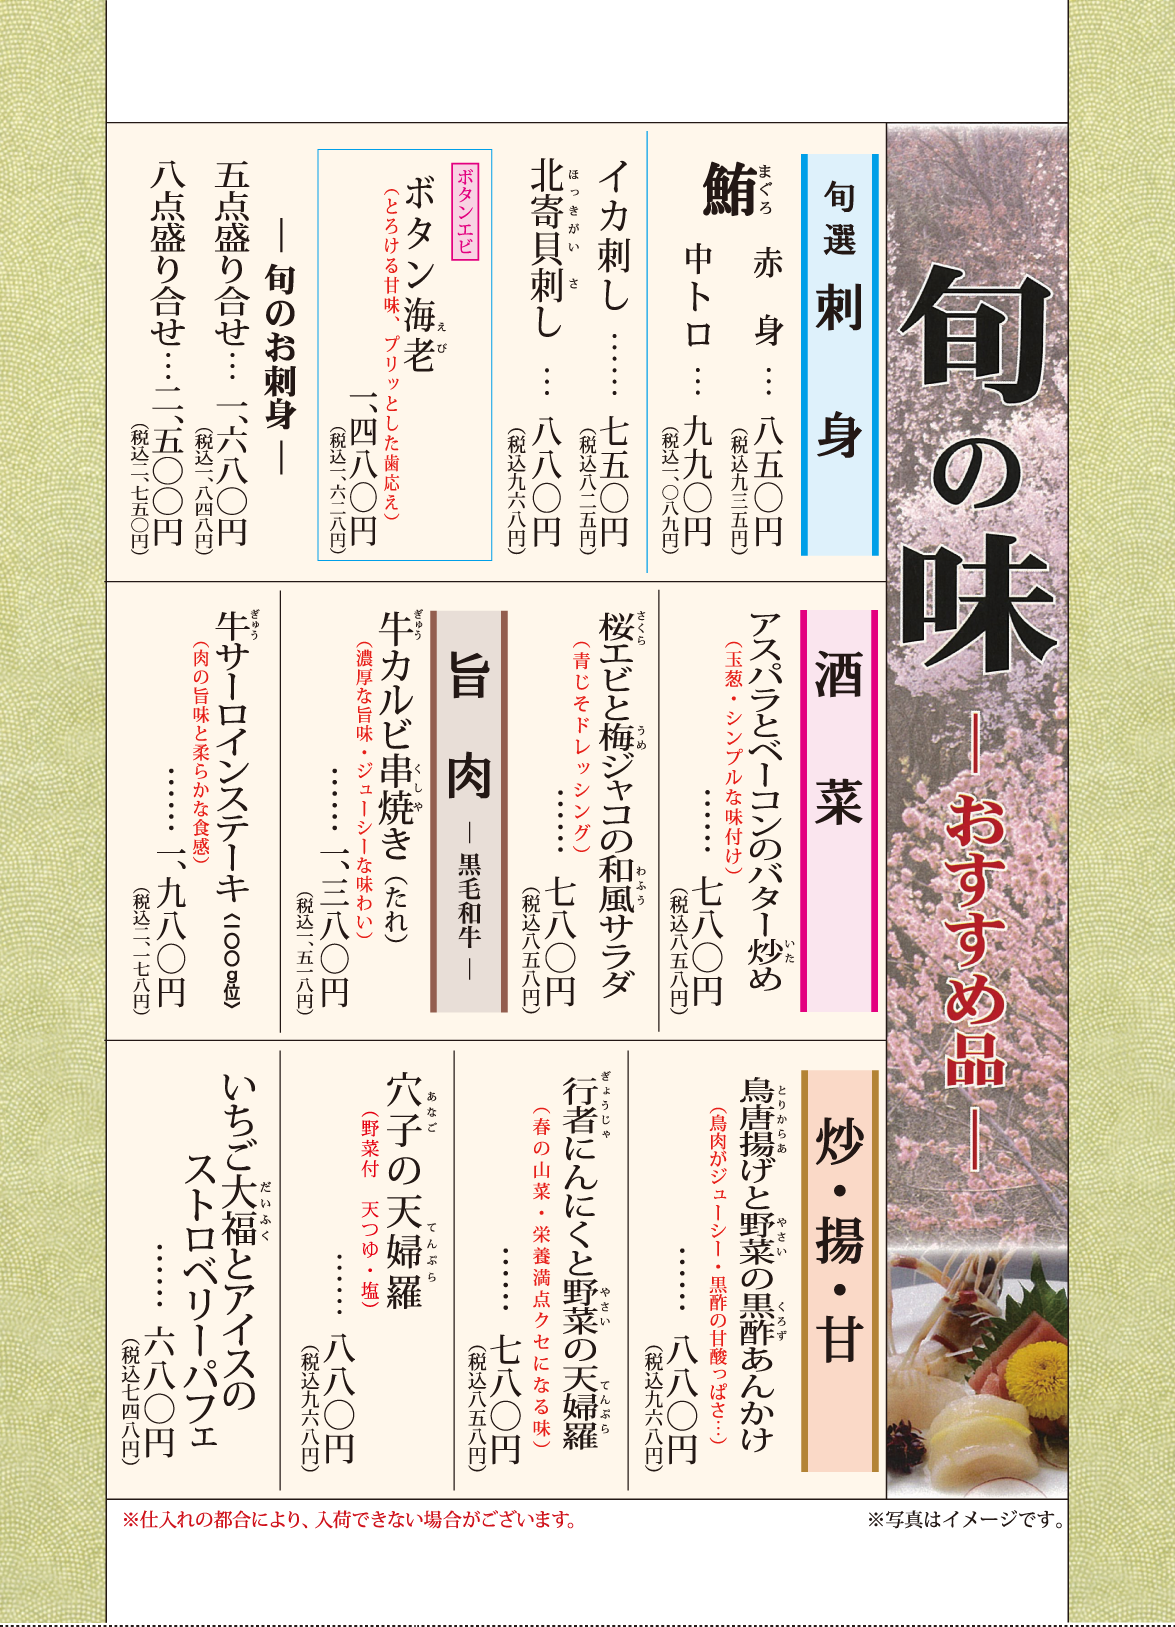 旬の味
―おすすめ品―
旬選 刺身
鮪 まぐろ
赤身…八五〇円
(税込九三五円)
中トロ…九九〇円
(税込一、〇八九円)
イカ刺し……七五〇円
(税込八二五円)
北寄貝刺し ほっきがいさ…八八〇円
(税込九六八円)
ボタンエビ
ボタン海老 えび
(とろける甘味、プリッとした歯応え)
一、四八〇円
(税込一、六二八円)
―旬のお刺身―
五点盛り合せ…一、六八〇円
(税込一、八四八円)
八点盛り合せ…二、五〇〇円
(税込二、七五〇円)
酒菜
アスパラとベーコンのバター炒め いた
(玉葱・シンプルな味付け)
……七八〇円
(税込八五八円)
桜エビと梅ジャコの和風サラダ さくら うめ わふう
(青じそドレッシング)
……七八〇円
(税込八五八円)
旨肉―黒毛和牛―
牛カルビ串焼き(たれ) ぎゅう くしや
(濃厚な旨味・ジューシーな味わい)
……一、三八〇円
(税込一、五一八円)
牛サーロインステーキ〈一〇〇g位〉 ぎゅう
(肉の旨味と柔らかな食感)
……一、九八〇円
(税込二、一七八円)
炒・揚・甘
鳥唐揚げと野菜の黒酢あんかけ とりからあ やさい くろず
(鳥肉がジューシー・黒酢の甘酸っぱさ…)
……八八〇円
(税込九六八円)
行者にんにくと野菜の天婦羅 ぎょうじゃ やさい てんぷら
(春の山菜・栄養満点クセになる味)
……七八〇円
(税込八五八円)
穴子の天婦羅 あなご てんぷら
(野菜付 天つゆ・塩)
……八八〇円
(税込九六八円)
いちご大福とアイスの だいふく
ストロベリーパフェ
……六八〇円
(税込七四八円)
※仕入れの都合により、入荷できない場合がございます。
※写真はイメージです。